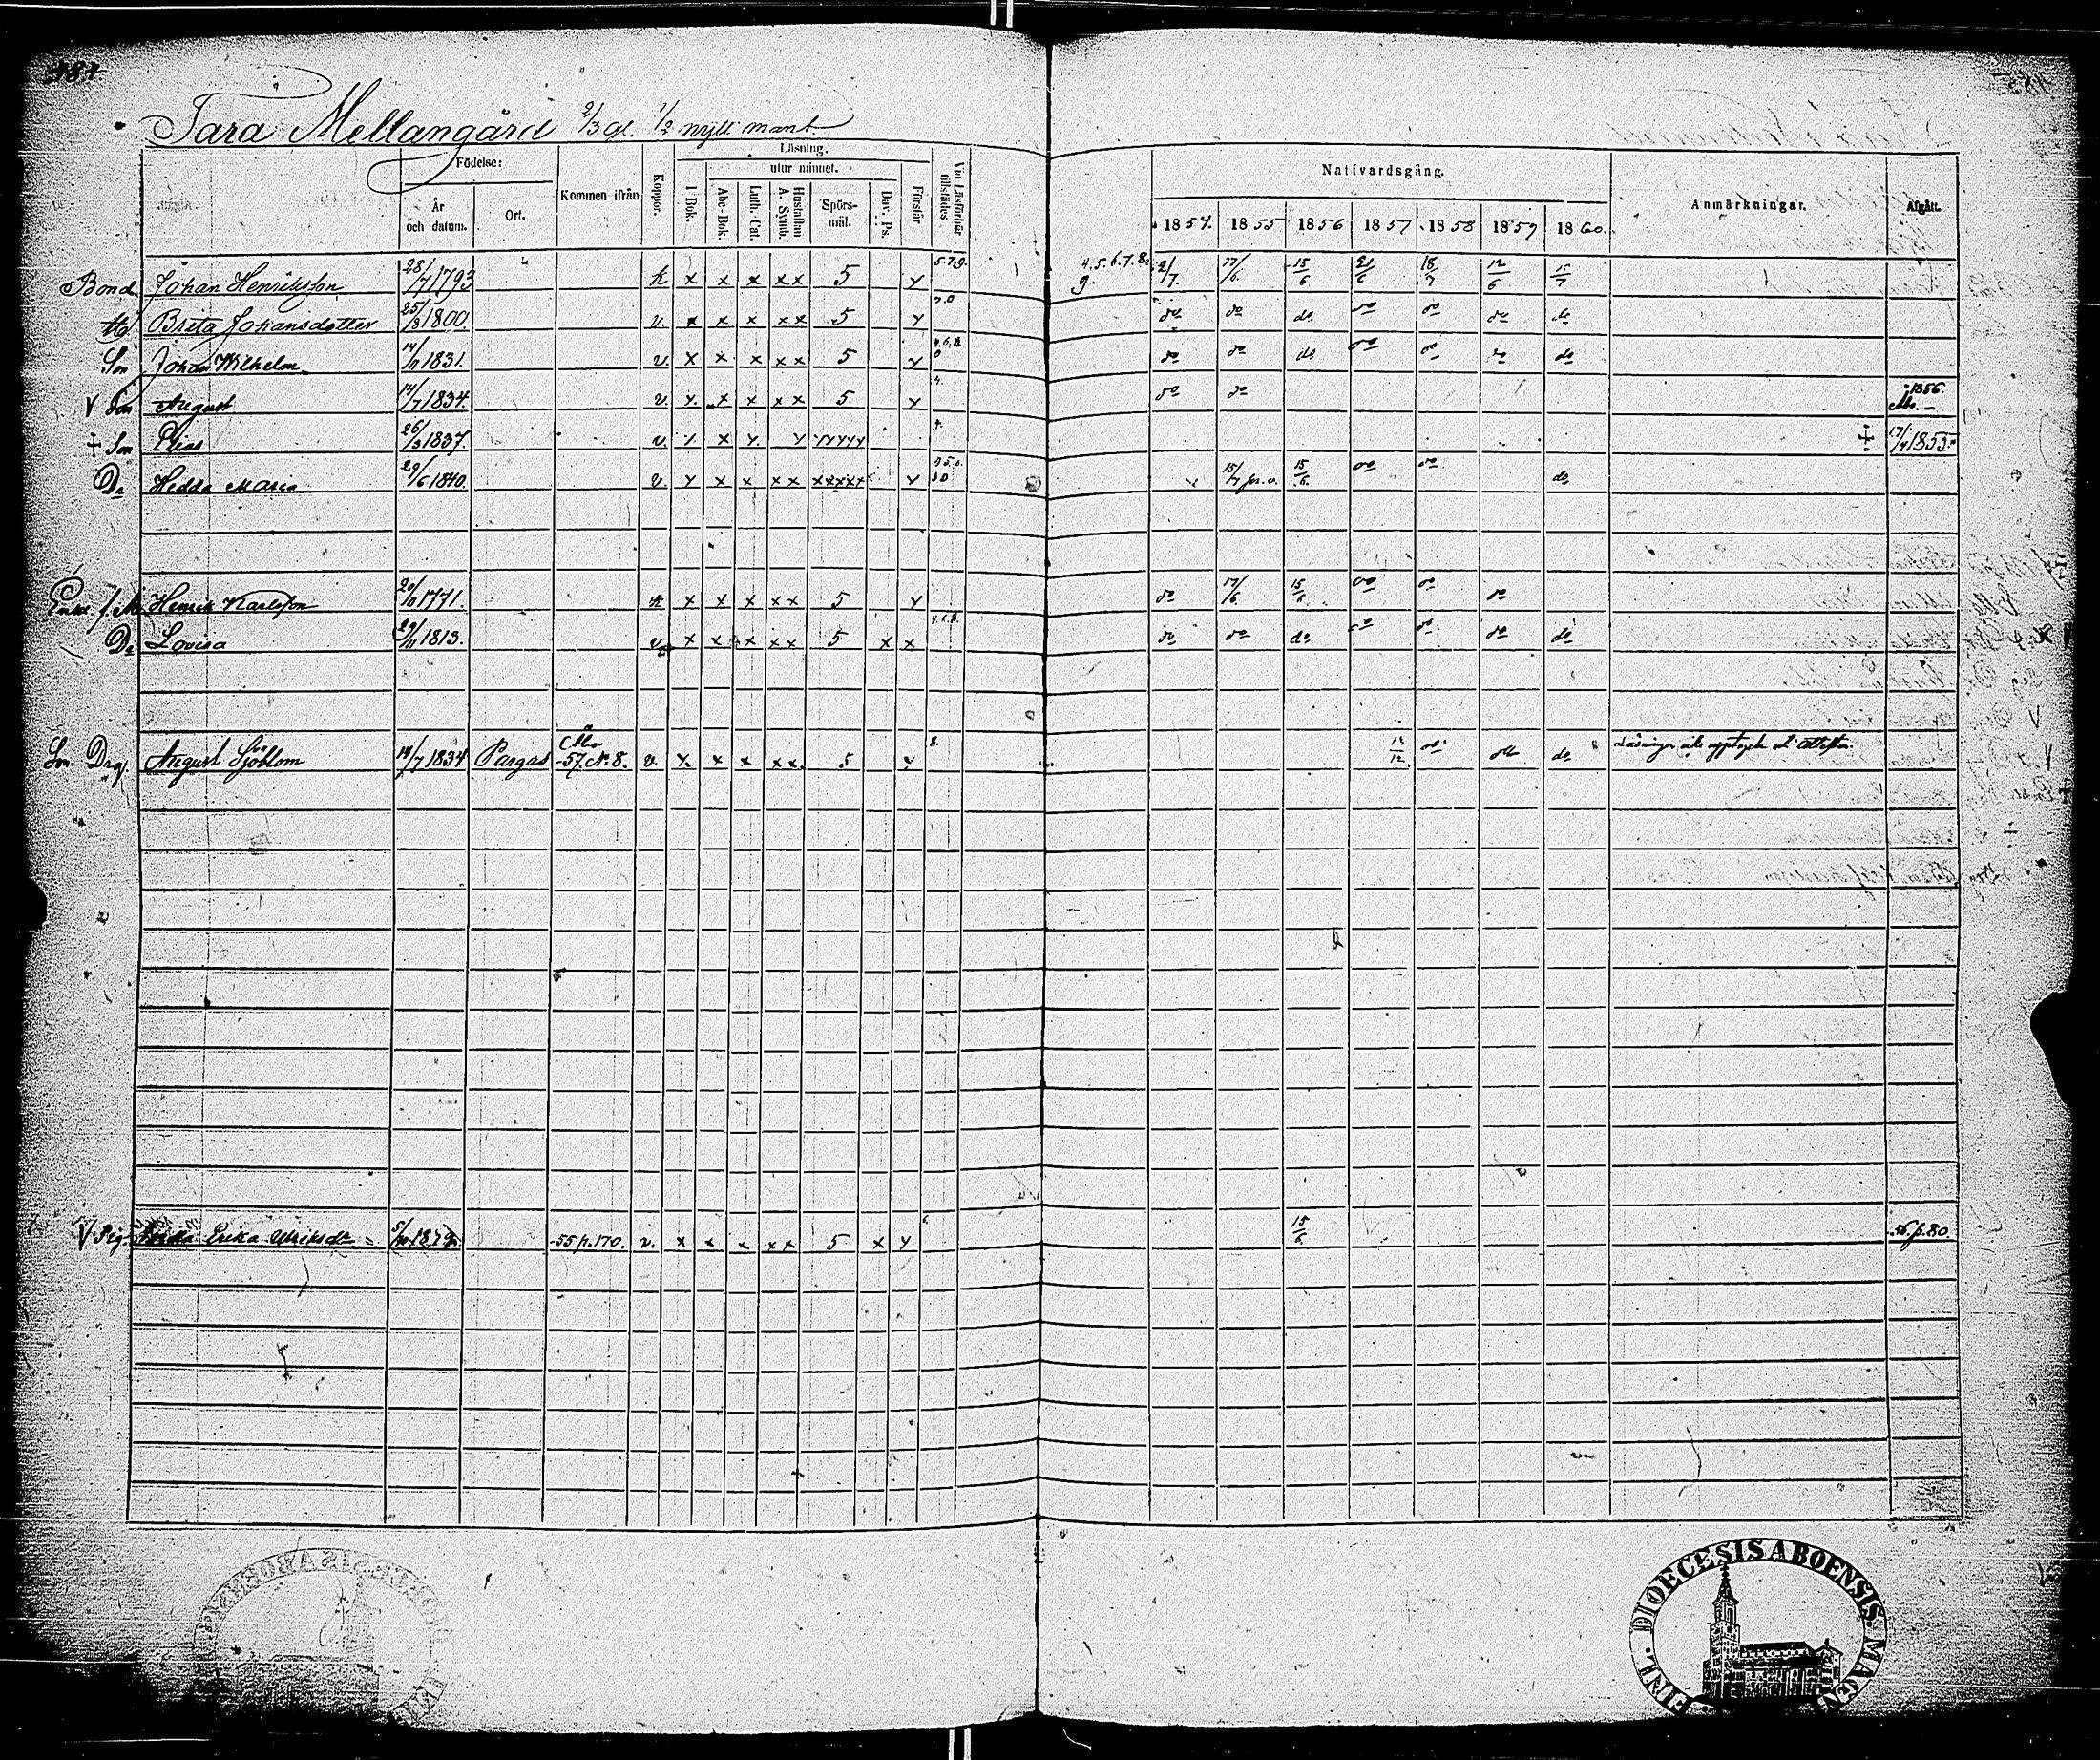 Tara Mellangård 2/3 gl. 1/2 nytt mant.
Födelse: År och datum. Ort. Kommen ifrån Koppor. Läsning. I Bok. utur minnet. Abc-Bok. Luth. Cat. Hustaflan A. Symb. Spörs-mål. Dav. Ps. Förstår Vid Läsförhör tillstädes Nattvardsgång. 1854. 1855 1856 1857 1858 1859 1860. Anmärkningar. Afgått.
Bond Johan Henriksson 28/7 1793 x x x x x 5 y 5.7.9. 4.5.6.7.8. 9. 2/7. 17/6. 15/6 21/6 18/7 12/6 15/7
H. Breta Johansdotter 25/8 1800. v. x x x x x 5 y do do do do do do do
Son Johan Wilhelm 14/11 1831. v. x x x x x 5 y 4.6.8. do do do do do do do
V Son August 14/7 1834. v. y. x x x x 5 y 4. do do 1856 Åbo.
+ Son Elias 26/3 1837. v. y x y. y yyyyy + 17/4 1855.
Dr Hedda Maria 29/6 1840. v. y x x x x xxxxx y 15/7 15/6. do do do
Henrik Karlsson 20/11 1771. x x x x x 5 y do 17/6 15/6. do do do
Dr Lovisa 29/11 1813. v x x x x x 5 x x 4.6.8. do do do do do do do
Son Drg. August Sjöblom 14/7 1834 Pargas Åbo -57. N. 8. v. x x x x x 5 y 8. 13/12 do do do
V Pig Erika 5/10 -55 p. 170. v. x x x x x 5 x y 6. 15/6. -56. p. 80.
FINL. DIOECESIS ABOENSIS MAGN